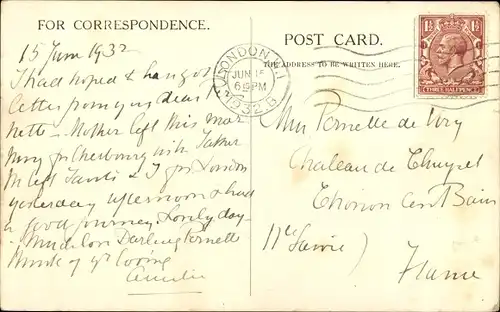 FOR CORRESPONDENCE.
15 June 1932
I had hoped to have got
letter from you dear
Nette - Mother left this mor
ning for Cherbourg with Father
We left & I for London
yesterday afternoon & had
a good journey. Lovely day
Much love Darling Pernette
of yr loving
POST CARD.
THE ADDRESS TO BE WRITTEN HERE.
LONDON. N.1
JUN 15
6 PM
1932
THREE HALFPENCE
Pernette de
Chateau de
Thonon les Bains
Hte Savoie)
France